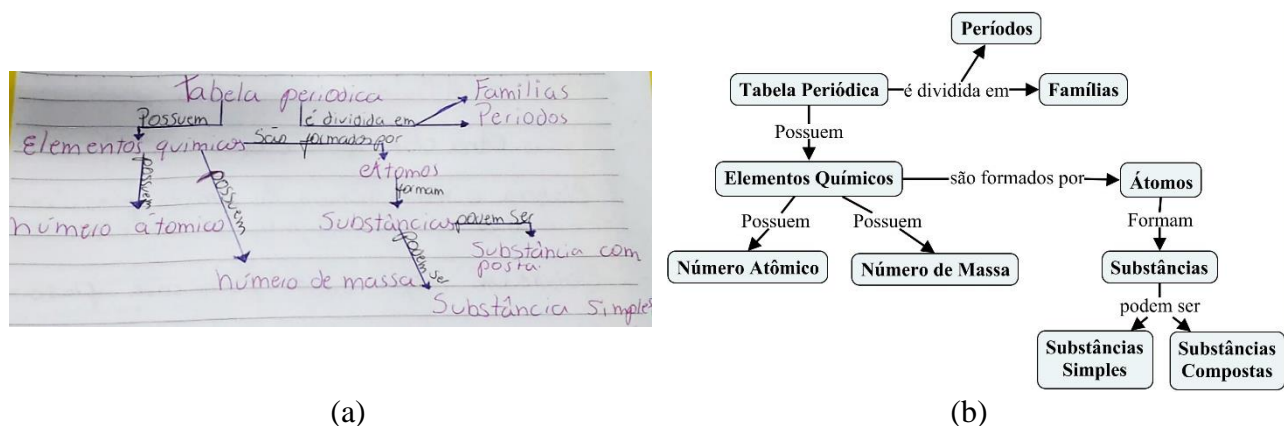 Tabela periodica
Possuem
é dividida em
Famílias
Periodos
Elementos químicos
São formados por
átomos
possuem
possuem
formam
número átomico
Substâncias
podem ser
Substância com
posta.
podem se
número de massa
Substância simples
(a)
Períodos
Tabela Periódica
é dividida em
Famílias
Possuem
Elementos Químicos
são formados por
Átomos
Possuem
Possuem
Formam
Número Atômico
Número de Massa
Substâncias
podem ser
Substâncias
Simples
Substâncias
Compostas
(b)